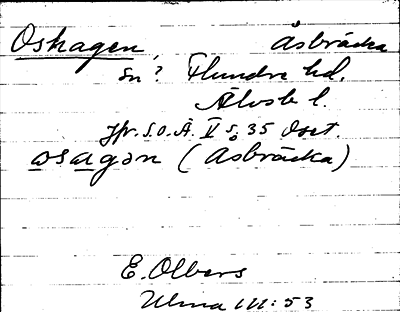 Oskagen, Åsbräcka
Sn? Flundre hd.
Älvsb l.
Jfr. S.O.Ä. II s. 35 Oset.
osagən (Åsbräcka)
E. Olbers
Ulma 111:53